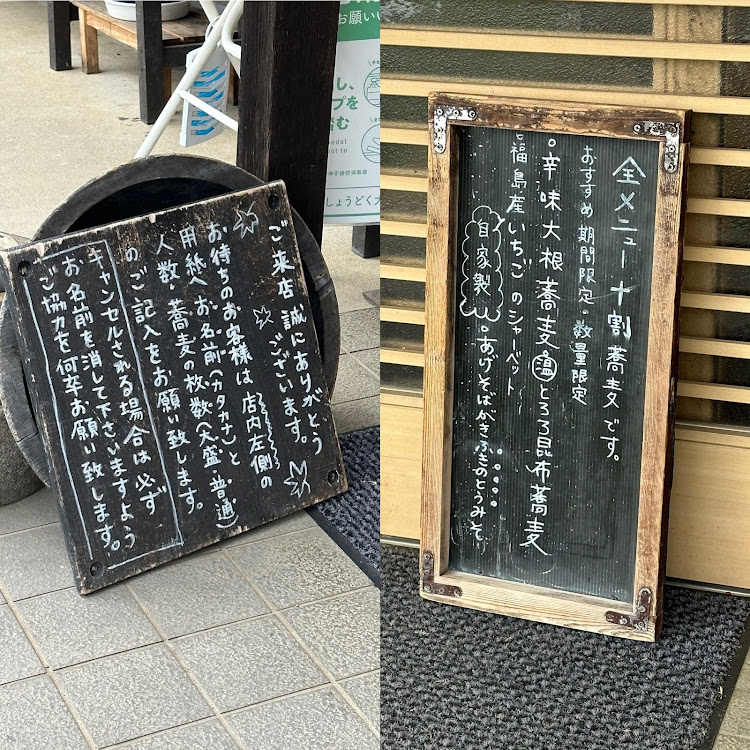 ご来店誠にありがとう
ございます。
お待ちのお客様は店内左側の
用紙へお名前(カタカナ)と
人数・蕎麦の枚数(大盛・普通)
のご記入をお願い致します。
キャンセルされる場合は必ず
お名前を消して下さいますよう
ご協力を何卒お願い致します。
お願いい
し、
プを
踏む
しょうどく
全メニュー十割蕎麦です。
おすすめ 期間限定・数量限定
○辛味大根蕎麦 温 とろろ昆布蕎麦
福島産いちごのシャーベット
自家製
○あげそばがきふきのとうみそ